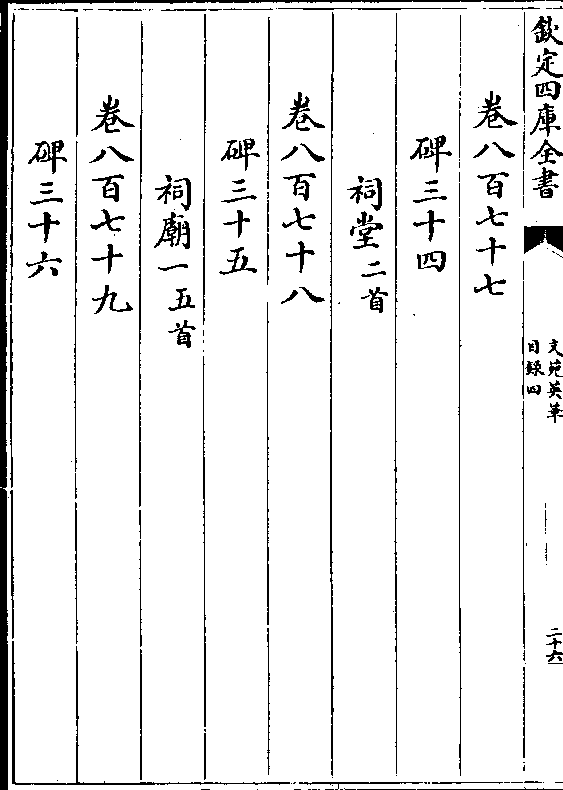 欽定四庫全書
文苑英華
目錄四
二十六
卷八百七十七
碑三十四
祠堂二首
卷八百七十八
碑三十五
祠廟一五首
卷八百七十九
碑三十六